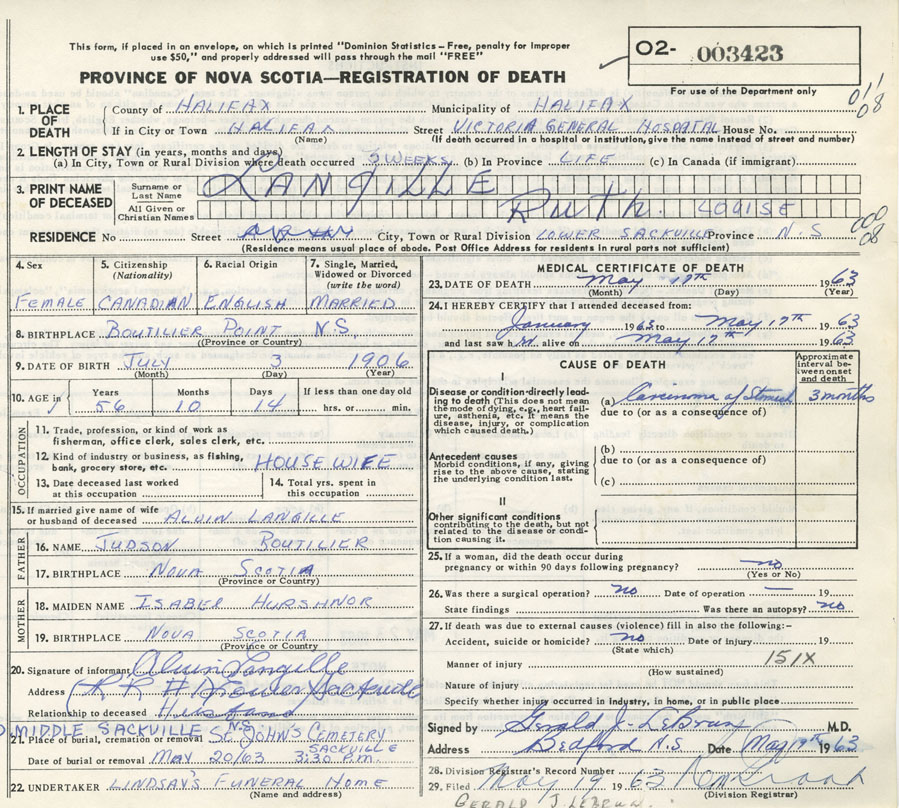 This form, if placed in an envelope, on which is printed "Dominion Statistics – Free, penalty for improper
use $50," and properly addressed will pass through the mail "FREE"
O2- 003423
For use of the Department only
PROVINCE OF NOVA SCOTIA—REGISTRATION OF DEATH
011
08
1. PLACE OF DEATH
County of HALIFAX Municipality of HALIFAX
If in City or Town HALIFAX Street VICTORIA GENERAL HOSPATAL House No.
(Name) (If death occurred in a hospital or institution, give the name instead of street and number)
2. LENGTH OF STAY (in years, months and days)
(a) In City, Town or Rural Division where death occurred 3 WEEKS (b) In Province LIFE (c) In Canada (if immigrant)
3. PRINT NAME OF DECEASED
Surname or Last Name LANGILLE
All Given or Christian Names Ruth. LOUISE
000
08
RESIDENCE No Street City, Town or Rural Division LOWER SACKVILLE Province N.S
(Residence means usual place of abode. Post Office Address for residents in rural parts not sufficient)
4. Sex 5. Citizenship (Nationality) 6. Racial Origin 7. Single, Married, Widowed or Divorced (write the word)
FEMALE CANADIAN ENGLISH MARRIED
8. BIRTHPLACE BOUTILIER POINT N.S.
(Province or Country)
9. DATE OF BIRTH JULY 3 1906
(Month) (Day) (Year)
10. AGE in Years Months Days If less than one day old
56 10 14 hrs. or min.
OCCUPATION
11. Trade, profession, or kind of work as
fisherman, office clerk, sales clerk, etc.
12. Kind of industry or business, as fishing,
bank, grocery store, etc. HOUSEWIFE
13. Date deceased last worked
at this occupation
14. Total yrs. spent in
this occupation
15. If married give name of wife
or husband of deceased ALVIN LANGILLE
FATHER
16. NAME JUDSON BOUTILIER
17. BIRTHPLACE NOVA SCOTIA
(Province or Country)
MOTHER
18. MAIDEN NAME ISABEL HURSHNOR
19. BIRTHPLACE NOVA SCOTIA
(Province or Country)
20. Signature of informant Alvin Langille
Address RR # Lower Sackville
Relationship to deceased Husband
MIDDLE SACKVILLE N.S.
21. Place of burial, cremation or removal ST JOHN'S CEMETERY
SACKVILLE
Date of burial or removal MAY 20/63 3:30 P.m.
22. UNDERTAKER LINDSAY'S FUNERAL HOME
(Name and address)
MEDICAL CERTIFICATE OF DEATH
23. DATE OF DEATH May 17th 1963
(Month) (Day) (Year)
24. I HEREBY CERTIFY that I attended deceased from:
January 1963 to May 17th 1963
and last saw h er alive on May 17th 1963
CAUSE OF DEATH
Approximate interval between onset and death
I
Disease or condition directly leading to death (This does not mean
the mode of dying, e.g., heart failure, asthenia, etc. It means the
disease, injury, or complication
which caused death.)
(a) Carcinoma of Stomach 3 months
due to (or as a consequence of)
Antecedent causes
Morbid conditions, if any, giving
rise to the above cause, stating
the underlying condition last.
(b)
due to (or as a consequence of)
(c)
II
Other significant conditions
contributing to the death, but not
related to the disease or condition causing it.
25. If a woman, did the death occur during
pregnancy or within 90 days following pregnancy? no
(Yes or No)
26. Was there a surgical operation? no Date of operation — 19
State findings Was there an autopsy? no
27. If death was due to external causes (violence) fill in also the following:—
Accident, suicide or homicide? no Date of injury 19
(State which)
151X
Manner of injury
(How sustained)
Nature of injury
Specify whether injury occurred in industry, in home, or in public place
Signed by Gerald J. LeBrun M.D.
Address Bedford N.S. Date May 17th 1963
28. Division Registrar's Record Number
29. Filed May 19 1963
(Division Registrar)
GERALD J. LEBRUN.